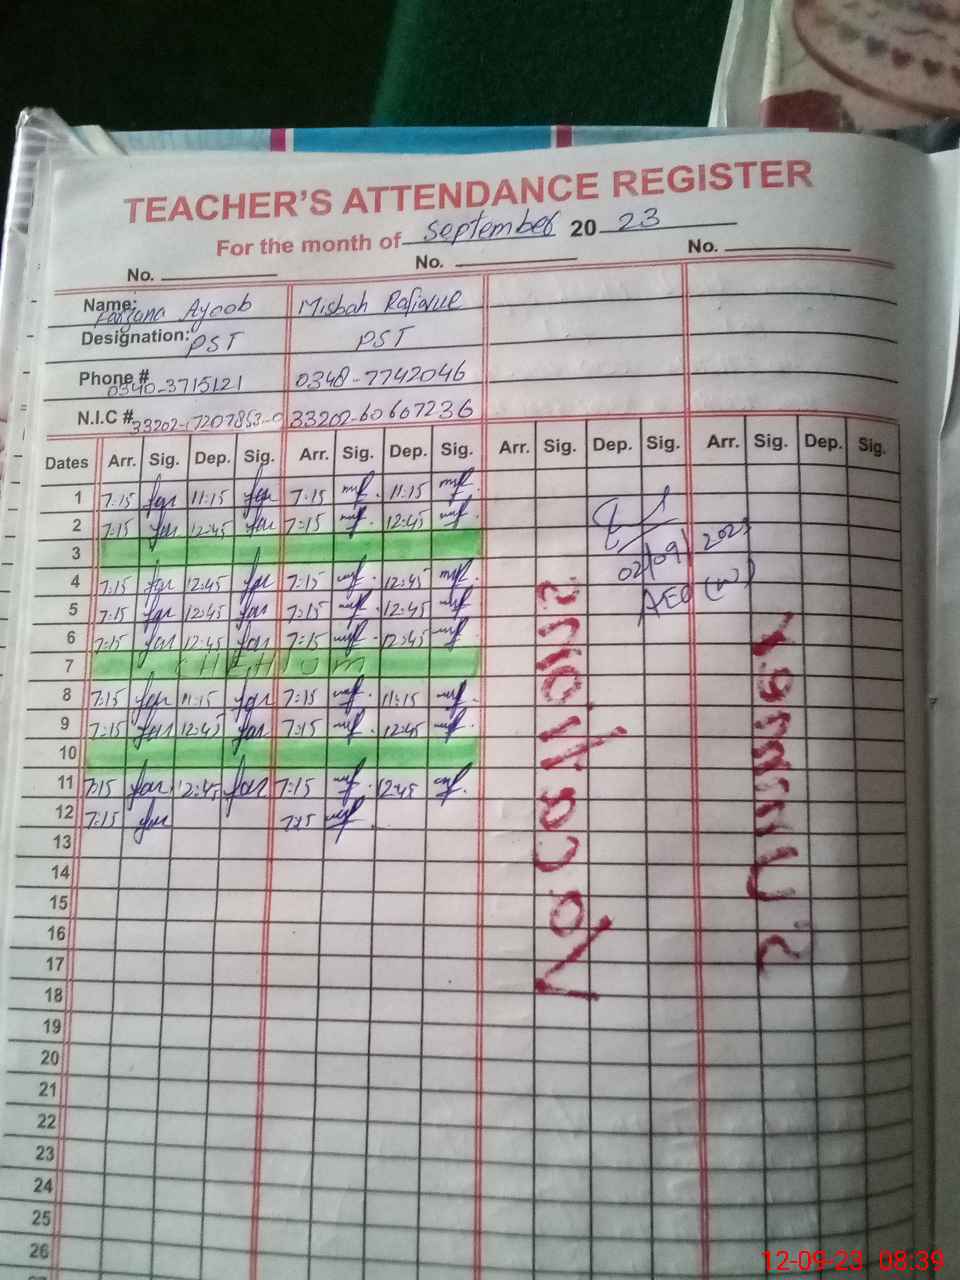 TEACHER'S ATTENDANCE REGISTER
For the month of September 2023
No. No. No.
Name: Farzana Ayoob Misbah Rafique
Designation: PST PST
Phone # 0340-3715121 0348-7742046
N.I.C # 33202-60667236
Dates Arr. Sig. Dep. Sig. Arr. Sig. Dep. Sig. Arr. Sig. Dep. Sig. Arr. Sig. Dep. Sig.
1 7:15 far 11:15 far 7:15 mf 11:15 mf
2 7:15 far 12:45 far 7:15 mf 12:45 mf
3
4 7:15 far 12:45 far 7:15 mf 12:45 mf
5 7:15 far 12:45 far 7:15 mf 12:45 mf
6 7:15 far 12:45 far 7:15 mf 12:45 mf
7 CHEHLUM
8 7:15 far 11:15 far 7:15 mf 11:15 mf
9 7:15 far 12:45 far 7:15 mf 12:45 mf
10
11 7:15 far 12:45 far 7:15 mf 12:45 mf
12 7:15 far 7:15 mf
13
14
15
16
17
18
19
20
21
22
23
24
25
26
02/09/2023
AEO (W)
12-09-23 08:39